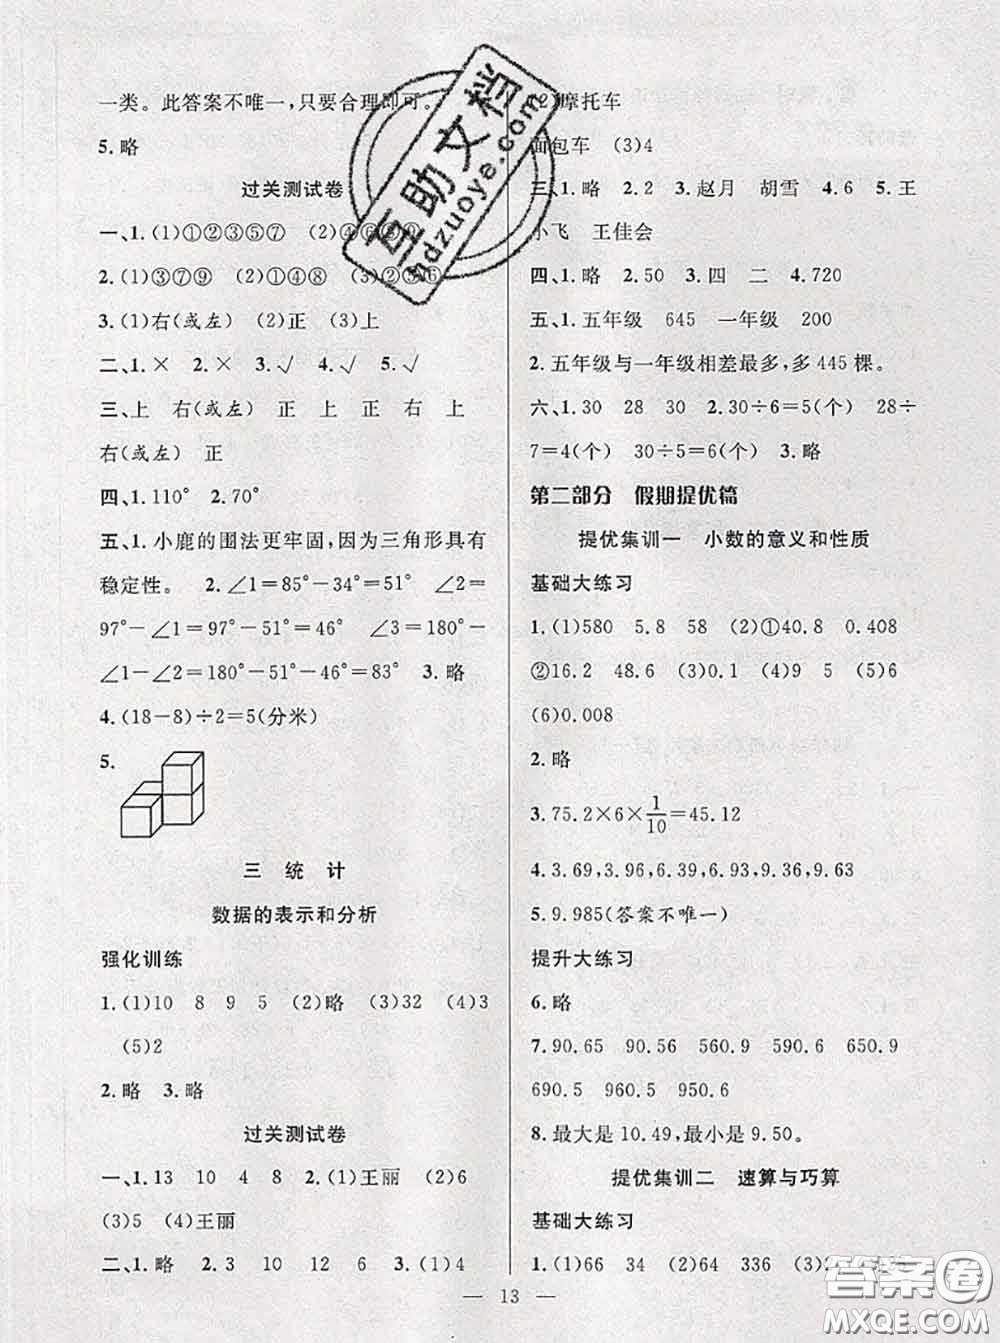 一类。此答案不唯一,只要合理即可。
5.略
过关测试卷
一、1.(1)①②③⑤⑦ (2)④⑥⑧⑨
2.(1)③⑦⑨ (2)①④⑧ (3)②⑤⑥
3.(1)右(或左) (2)正 (3)上
二、1.× 2.× 3.√ 4.√
三、上 右(或左) 正 上 正 右 上
右(或左) 正
四、1.110° 2.70°
五、1.小鹿的围法更牢固,因为三角形具有
稳定性。 2.∠1=85°-34°=51° ∠2=
97°-∠1=97°-51°=46° ∠3=180°-
∠1-∠2=180°-51°-46°=83° 3.略
4.(18-8)÷2=5(分米)
5.
三 统 计
数据的表示和分析
强化训练
1.(1)10 8 9 5 (2)略 (3)32 (4)3
(5)2
2.略 3.略
过关测试卷
一、1.13 10 4 8 2.(1)王丽 (2)6
(3)5 (4)王丽
二、1.略 2.3 10 12 6 3.(1)4
摩托车
面包车 (3)4
三、1.略 2.2 3.赵月 胡雪 4.6 5.王
小飞 王佳会
四、1.略 2.50 3.四 二 4.720
五、1.五年级 645 一年级 200
2.五年级与一年级相差最多,多445棵。
六、1.30 28 30 2.30÷6=5(个) 28÷
7=4(个) 30÷5=6(个) 3.略
第二部分 假期提优篇
提优集训一 小数的意义和性质
基础大练习
1.(1)580 5.8 58 (2)①40.8 0.408
②16.2 48.6 (3)0.1 (4)9 5 (5)6
(6)0.008
2.略
3.75.2×6×1/10=45.12
4.3.69,3.96,6.39,6.93,9.36,9.63
5.9.985(答案不唯一)
提升大练习
6.略
7.90.65 90.56 560.9 590.6 650.9
690.5 960.5 950.6
8.最大是10.49,最小是9.50。
提优集训二 速算与巧算
基础大练习
1.(1)66 34 (2)64 336 (3)2
13
互助文档
hdzuoye.com
答案圈
MXQE.COM